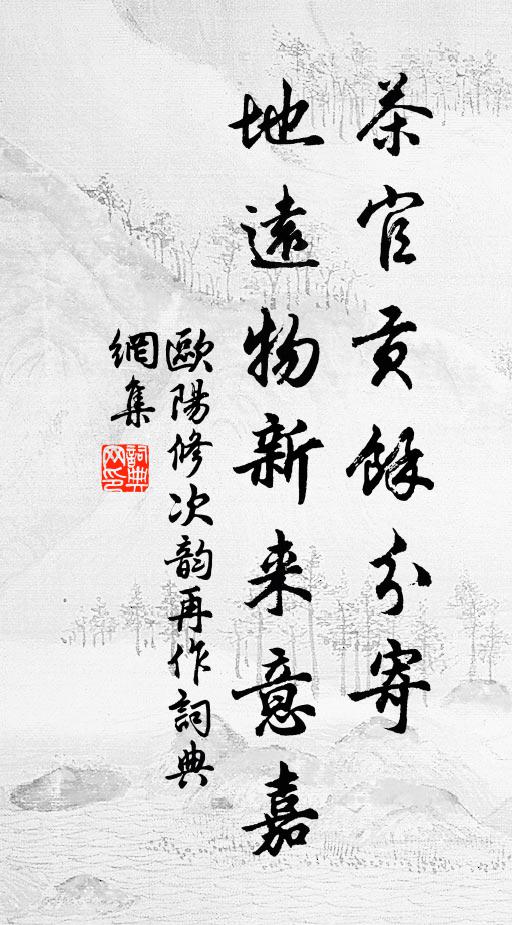 茶官貢餘分寄
地遠物新来意嘉
歐陽修次韵再作詞典
網集
詞典
网印